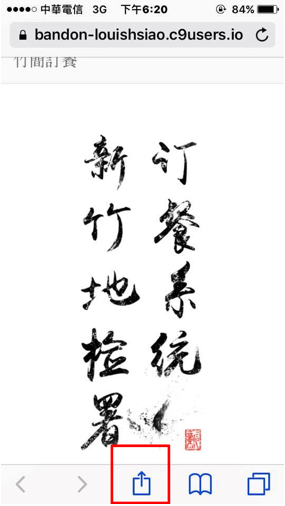 中華電信 3G 下午6:20 84%
bandon-louishsiao.c9users.io
竹間訂餐
新竹地检署
订餐系统